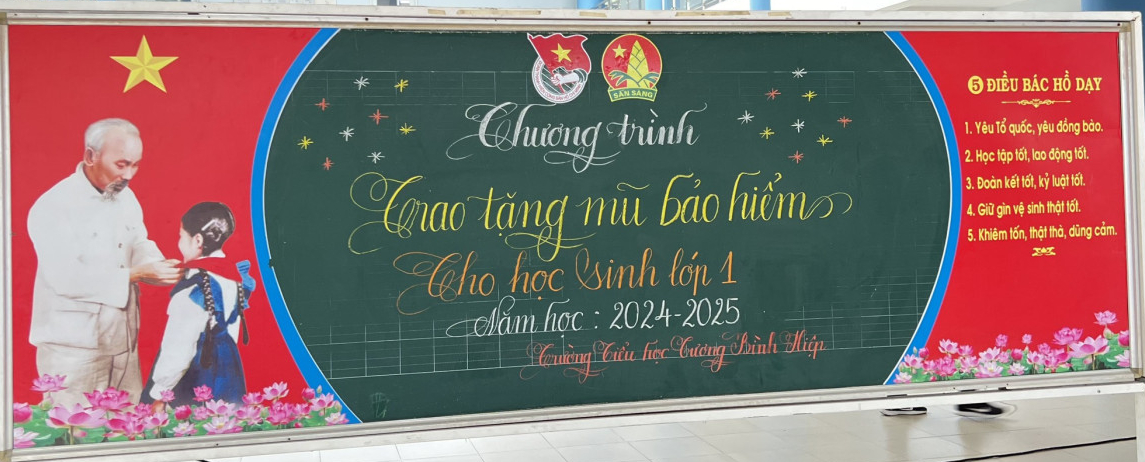 SẴN SÀNG
Chương trình
Trao tặng mũ bảo hiểm
Cho học sinh lớp 1
Năm học : 2024-2025
Trường Tiểu học Tương Bình Hiệp
5 ĐIỀU BÁC HỒ DẠY
1. Yêu Tổ quốc, yêu đồng bào.
2. Học tập tốt, lao động tốt.
3. Đoàn kết tốt, kỷ luật tốt.
4. Giữ gìn vệ sinh thật tốt.
5. Khiêm tốn, thật thà, dũng cảm.